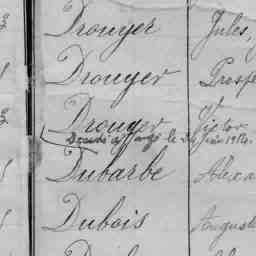 Drouyer Jules,
Drouyer Prosp
Drouyer Victor
Décédé à le 24 Juin 1912.
Dubarbe Alexa
Dubois Auguste